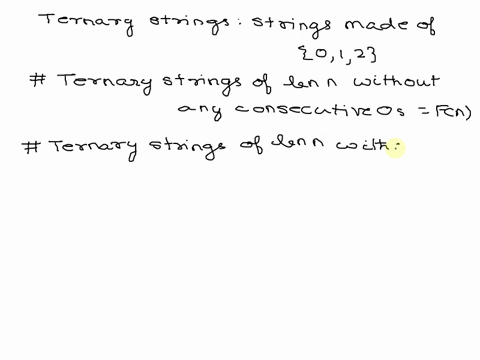 Ternary strings: strings made of
{0,1,2}
# Ternary strings of len n without
any consecutive 0s = F(n)
# Ternary strings of len n with